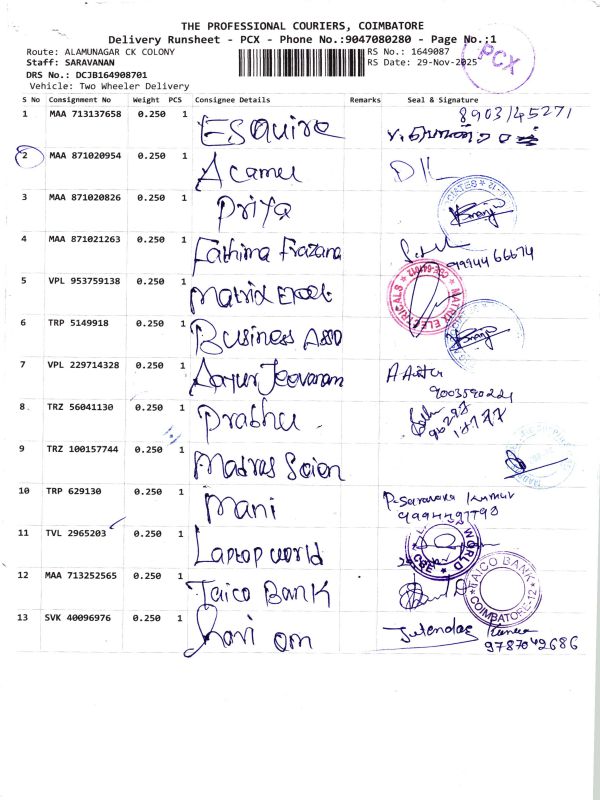 THE PROFESSIONAL COURIERS, COIMBATORE
Delivery Runsheet - PCX - Phone No.:9047080280 - Page No.:1
Route: ALAMUNAGAR CK COLONY
RS No.: 1649087
Staff: SARAVANAN
RS Date: 29-Nov-2025
PCX
DRS No.: DCJB164908701
Vehicle: Two Wheeler Delivery
S No Consignment No Weight PCS Consignee Details Remarks Seal & Signature
1 MAA 713137658 0.250 1 Esquire 8903145271
2 MAA 871020954 0.250 1 Acamee
3 MAA 871020826 0.250 1 Priya
4 MAA 871021263 0.250 1 Fathima Frazana 9994466674
5 VPL 953759138 0.250 1 Matrix MATRIX ELECTRICALS * CBE-641012 *
6 TRP 5149918 0.250 1 Business Asso
7 VPL 229714328 0.250 1 Aayur Jeevanam
9003590221
8 TRZ 56041130 0.250 1 Prabhu 96297
17777
9 TRZ 100157744 0.250 1 Madras Scien
10 TRP 629130 0.250 1 Mani P. Saravana Kumar
11 TVL 2965203 0.250 1 Laptop world WORLD * CBE *
12 MAA 713252565 0.250 1 Taico Bank TAICO BANK * COIMBATORE-12 *
13 SVK 40096976 0.250 1 Hari om Kumar
9787042686